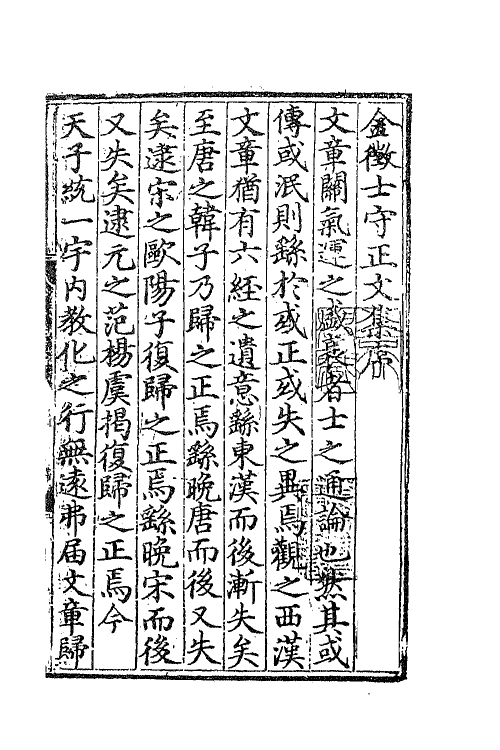 金徵士守正文集序
文章關氣運之盛衰者士之通論也然其或
傳或泯則繇於或正或失之異焉觀之西漢
文章猶有六經之遺意繇東漢而後漸失矣
至唐之韓子乃歸之正焉繇晚唐而後又失
矣逮宋之歐陽子復歸之正焉繇晚宋而後
又失矣逮元之范楊虞揭復歸之正焉今
天子統一宇内教化之行無遠弗届文章歸